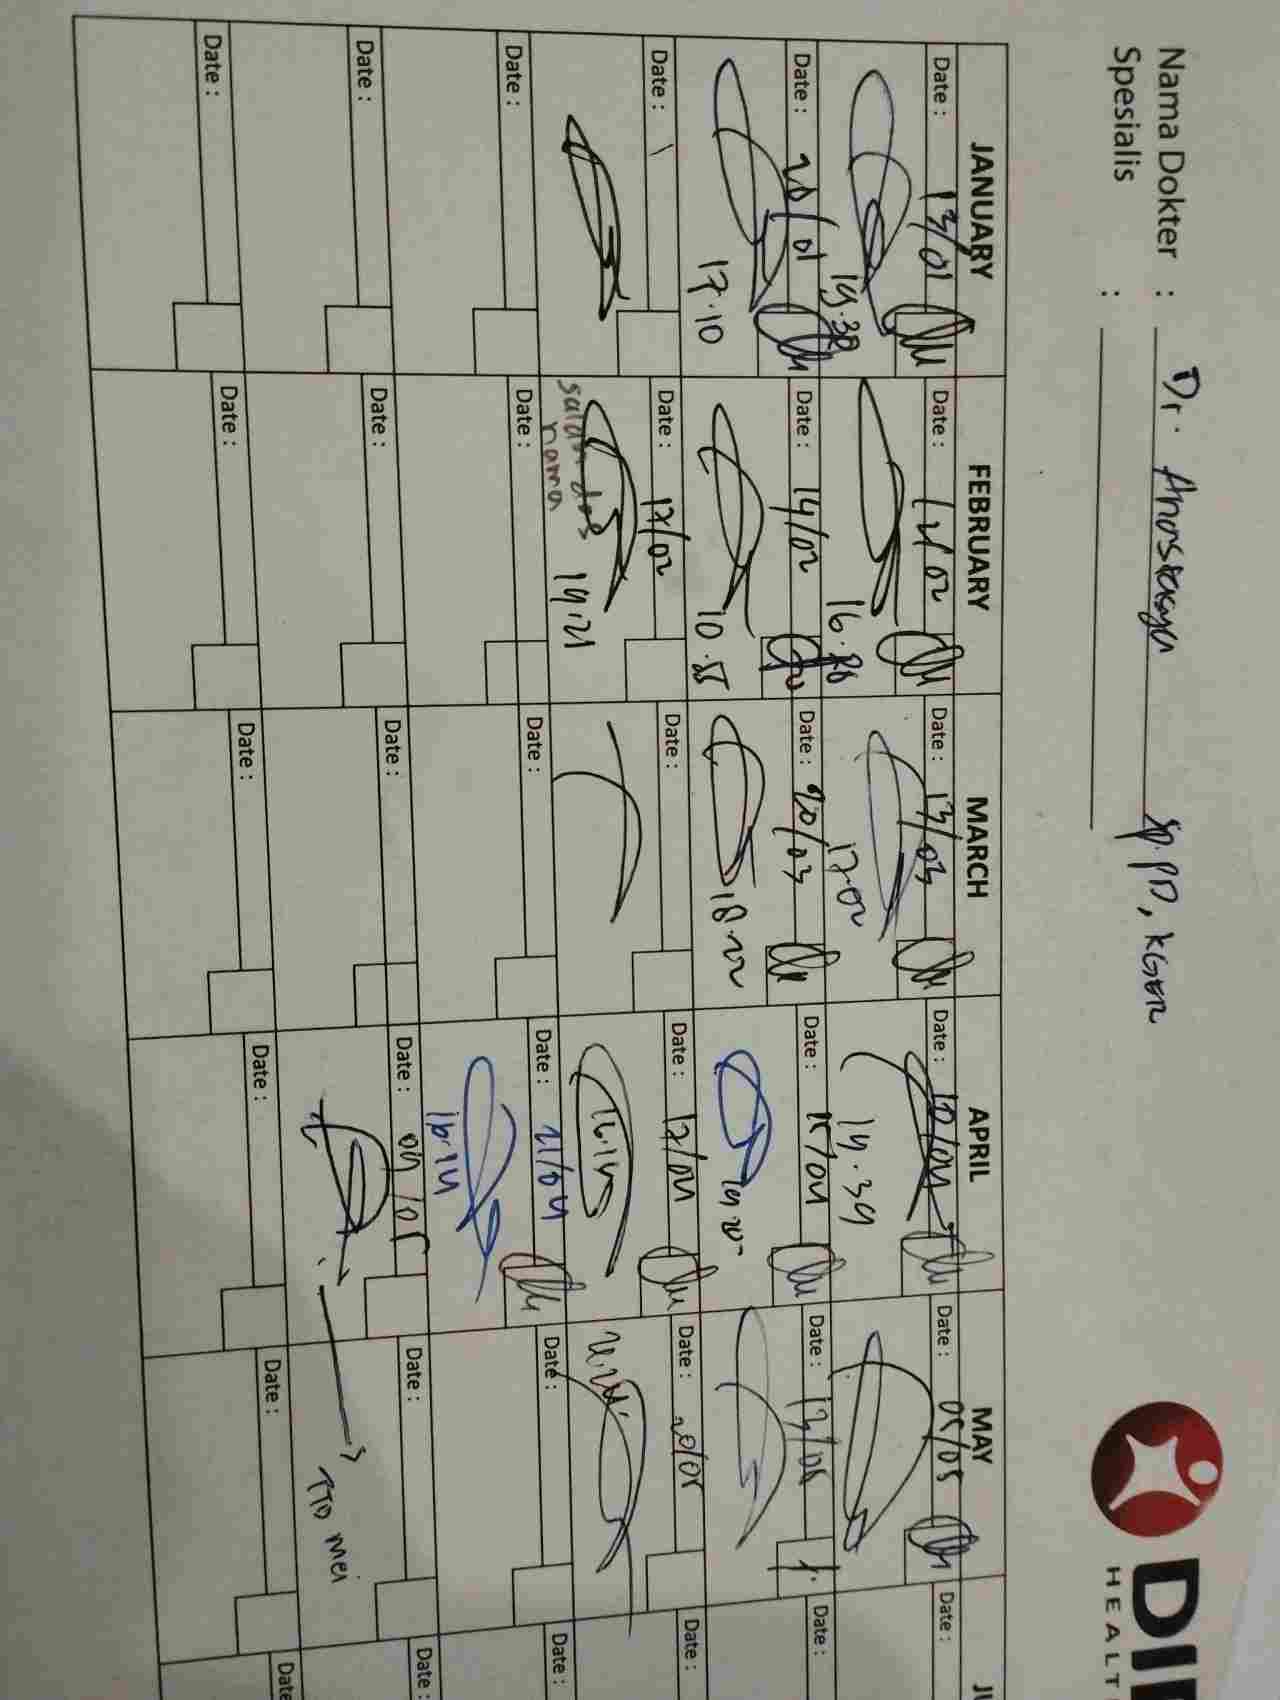 Nama Dokter : Dr. Sp.PD, KGER
Spesialis :
DI
HEALT
JANUARY FEBRUARY MARCH APRIL MAY JU
Date : 13/01 Date : Date : 13/03 Date : 10/04 Date : 05/05 Date :
19.30 16. 17.02 19.39
Date : 20/01 Date : 14/02 Date : 20/03 Date : 15/04 Date : 13/05 Date :
17.10 10.55 18.22 19.20
Date : Date : 17/02 Date : Date : 17/04 Date : 20/05 Date :
salah dos
nama 19.21 16.14
Date : Date : Date : Date : 21/04 Date : Date :
16.14
Date : Date : Date : Date : 04/05 Date : Date :
TTD mei
Date : Date : Date : Date : Date : Date